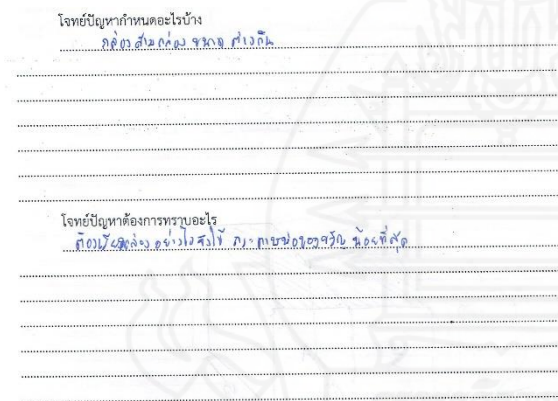 โจทย์ปัญหากำหนดอะไรบ้าง
กล่องสามกล่อง ขนาด ต่างกัน
โจทย์ปัญหาต้องการทราบอะไร
ต้องเรียงกล่อง อย่างไรจึงใช้ กระดาษห่อของขวัญ น้อยที่สุด